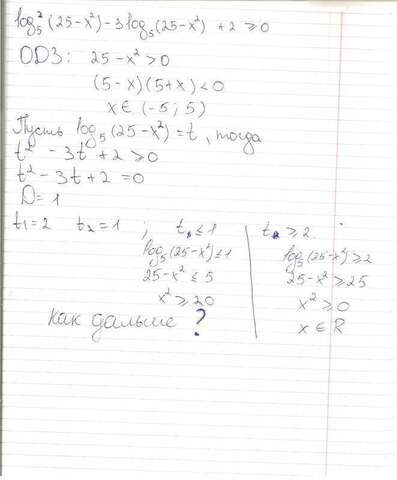 log₅²(25-x²)-3log₅(25-x²)+2≥0
ОДЗ: 25-x²>0
(5-x)(5+x)<0
x∈(-5;5)
Пусть log₅(25-x²)=t, тогда
t²-3t+2≥0
t²-3t+2=0
D=1
t₁=2 t₂=1 ; t≤1
log₅(25-x²)≤1
25-x²≤5
x²≥20
t≥2
log₅(25-x²)≥2
25-x²≥25
x²≥0
x∈R
как дальше ?